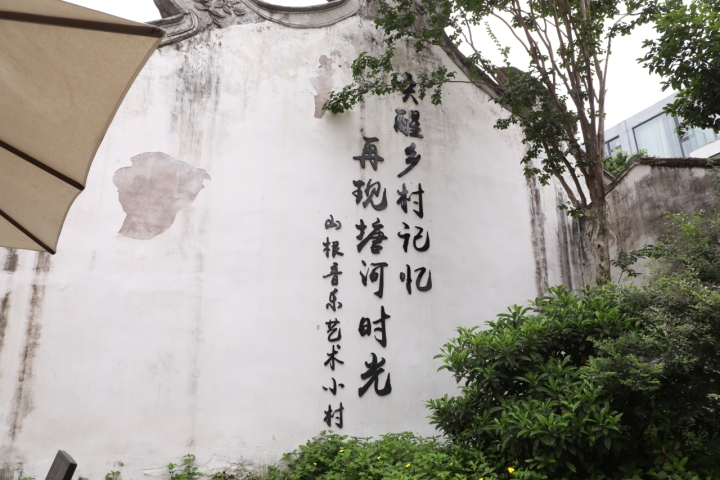 唤醒乡村记忆
再现塘河时光
山根音乐艺术小村